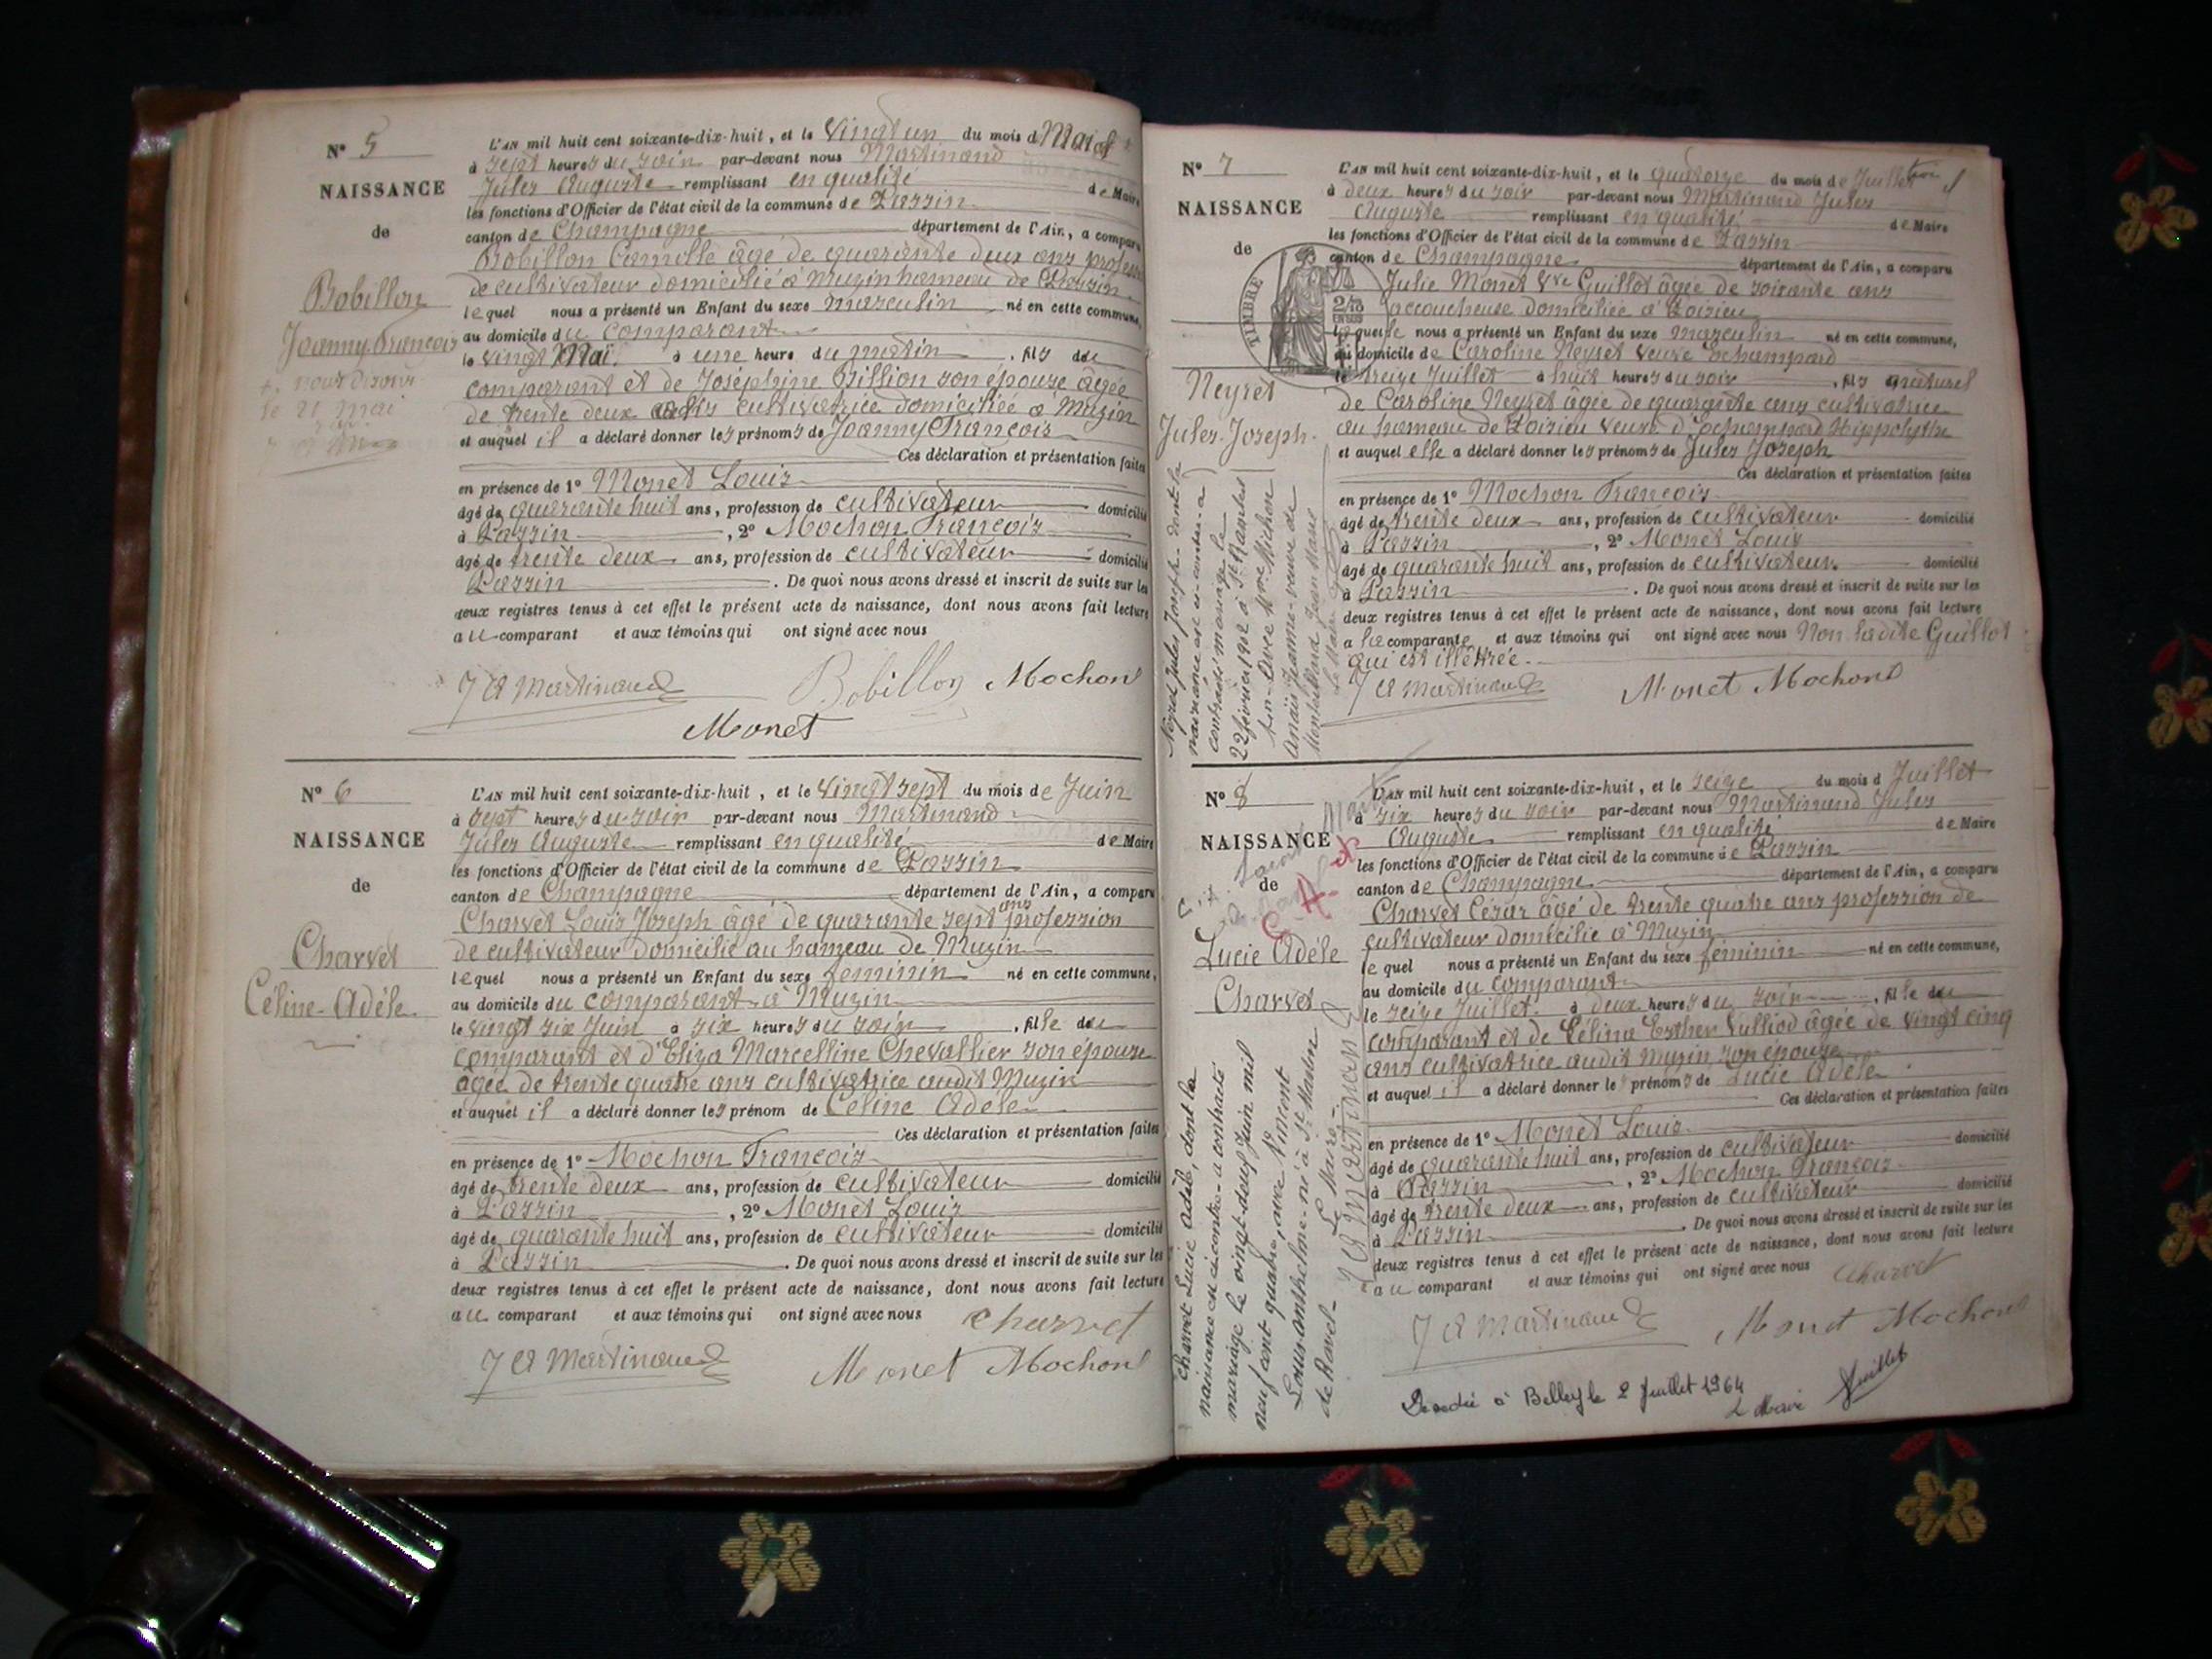 N° 5
NAISSANCE
de
Bobillon
Joanny François
le 21 mai
L'AN mil huit cent soixante-dix-huit, et le Vingt un du mois de Mai
à sept heures du soir par-devant nous Martinand
Jules Auguste remplissant en qualité de Maire
les fonctions d'Officier de l'état civil de la commune de Passin
canton de Champagne département de l'Ain, a comparu
Bobillon Camille âgé de quarante deux ans profession
de cultivateur domicilié à Muzin hameau de Passin
lequel nous a présenté un Enfant du sexe masculin né en cette commune,
au domicile du comparant
le vingt Mai à une heure du matin, fils du
comparant et de Joséphine Billion son épouse âgée
de trente deux ans cultivatrice domiciliée à Muzin
et auquel il a déclaré donner les prénoms de Joanny François
Ces déclaration et présentation faites
en présence de 1° Monet Louis
âgé de quarante huit ans, profession de cultivateur domicilié
à Passin, 2° Mochon François
âgé de trente deux ans, profession de cultivateur domicilié
Passin. De quoi nous avons dressé et inscrit de suite sur les
deux registres tenus à cet effet le présent acte de naissance, dont nous avons fait lecture
au comparant et aux témoins qui ont signé avec nous
J A Martinand Bobillon Mochon
Monet
N° 6
NAISSANCE
de
Charvet
Céline-Adèle
L'AN mil huit cent soixante-dix-huit, et le Vingt sept du mois de Juin
à sept heures du soir par-devant nous Martinand
Jules Auguste remplissant en qualité de Maire
les fonctions d'Officier de l'état civil de la commune de Passin
canton de Champagne département de l'Ain, a comparu
Charvet Louis Joseph âgé de quarante sept ans profession
de cultivateur domicilié au hameau de Muzin
lequel nous a présenté un Enfant du sexe féminin né en cette commune,
au domicile du comparant à Muzin
le vingt six Juin à six heures du soir, fille du
comparant et d'Eliza Marcelline Chevallier son épouse
âgée de trente quatre ans cultivatrice audit Muzin
et auquel il a déclaré donner les prénom de Céline Adèle
Ces déclaration et présentation faites
en présence de 1° Mochon François
âgé de trente deux ans, profession de cultivateur domicilié
à Passin, 2° Monet Louis
âgé de quarante huit ans, profession de cultivateur domicilié
à Passin. De quoi nous avons dressé et inscrit de suite sur les
deux registres tenus à cet effet le présent acte de naissance, dont nous avons fait lecture
au comparant et aux témoins qui ont signé avec nous Charvet
J A Martinand Monet Mochon
N° 7
NAISSANCE
de
TIMBRE
Neyret
Jules-Joseph
Neyret Jules Joseph dont la
naissance est ci-contre a
contracté mariage le
22 février 1902 à
avec Michon
Anaïs Jeanne veuve de
Jean Marie
Le Maire
L'AN mil huit cent soixante-dix-huit, et le quatorze du mois de Juillet
à deux heures du soir par-devant nous Martinand Jules
Auguste remplissant en qualité de Maire
les fonctions d'Officier de l'état civil de la commune de Passin
canton de Champagne département de l'Ain, a comparu
Julie Monet Vve Guillot âgée de soixante ans
accoucheuse domiciliée à Poisieu
laquelle nous a présenté un Enfant du sexe masculin né en cette commune,
au domicile de Caroline Neyret veuve Echampard
le treize Juillet à huit heures du soir, fils naturel
de Caroline Neyret âgée de quarante ans cultivatrice
au hameau de Poisieu veuve d'Echampard Hippolythe
et auquel elle a déclaré donner les prénoms de Jules Joseph
Ces déclaration et présentation faites
en présence de 1° Mochon François
âgé de trente deux ans, profession de cultivateur domicilié
à Passin, 2° Monet Louis
âgé de quarante huit ans, profession de cultivateur domicilié
à Passin. De quoi nous avons dressé et inscrit de suite sur les
deux registres tenus à cet effet le présent acte de naissance, dont nous avons fait lecture
a la comparante et aux témoins qui ont signé avec nous Non ladite Guillot
qui est illettrée.
J A Martinand Monet Mochon
N° 8
NAISSANCE
de
Lucie Adèle
Charvet
Charvet Lucie Adèle, dont la
naissance est ci-contre a contracté
mariage le vingt-deux Juin mil
neuf cent quatre, avec Vincent
Louis Anthelme né à St Martin
de Bavel. Le Maire
J A Martinand
L'AN mil huit cent soixante-dix-huit, et le seize du mois d Juillet
à six heures du soir par-devant nous Martinand Jules
Auguste remplissant en qualité de Maire
les fonctions d'Officier de l'état civil de la commune de Passin
canton de Champagne département de l'Ain, a comparu
Charvet César âgé de trente quatre ans profession de
cultivateur domicilié à Muzin
lequel nous a présenté un Enfant du sexe féminin né en cette commune,
au domicile du comparant
le seize Juillet à deux heures du soir, fille du
comparant et de Célina Esther Vulliod âgée de vingt cinq
ans cultivatrice audit Muzin son épouse
et auquel il a déclaré donner les prénoms de Lucie Adèle
Ces déclaration et présentation faites
en présence de 1° Monet Louis
âgé de quarante huit ans, profession de cultivateur domicilié
à Passin, 2° Mochon François
âgé de trente deux ans, profession de cultivateur domicilié
à Passin. De quoi nous avons dressé et inscrit de suite sur les
deux registres tenus à cet effet le présent acte de naissance, dont nous avons fait lecture
au comparant et aux témoins qui ont signé avec nous Charvet
J A Martinand Monet Mochon
Décédée à Belley le 2 Juillet 1964
Le Maire